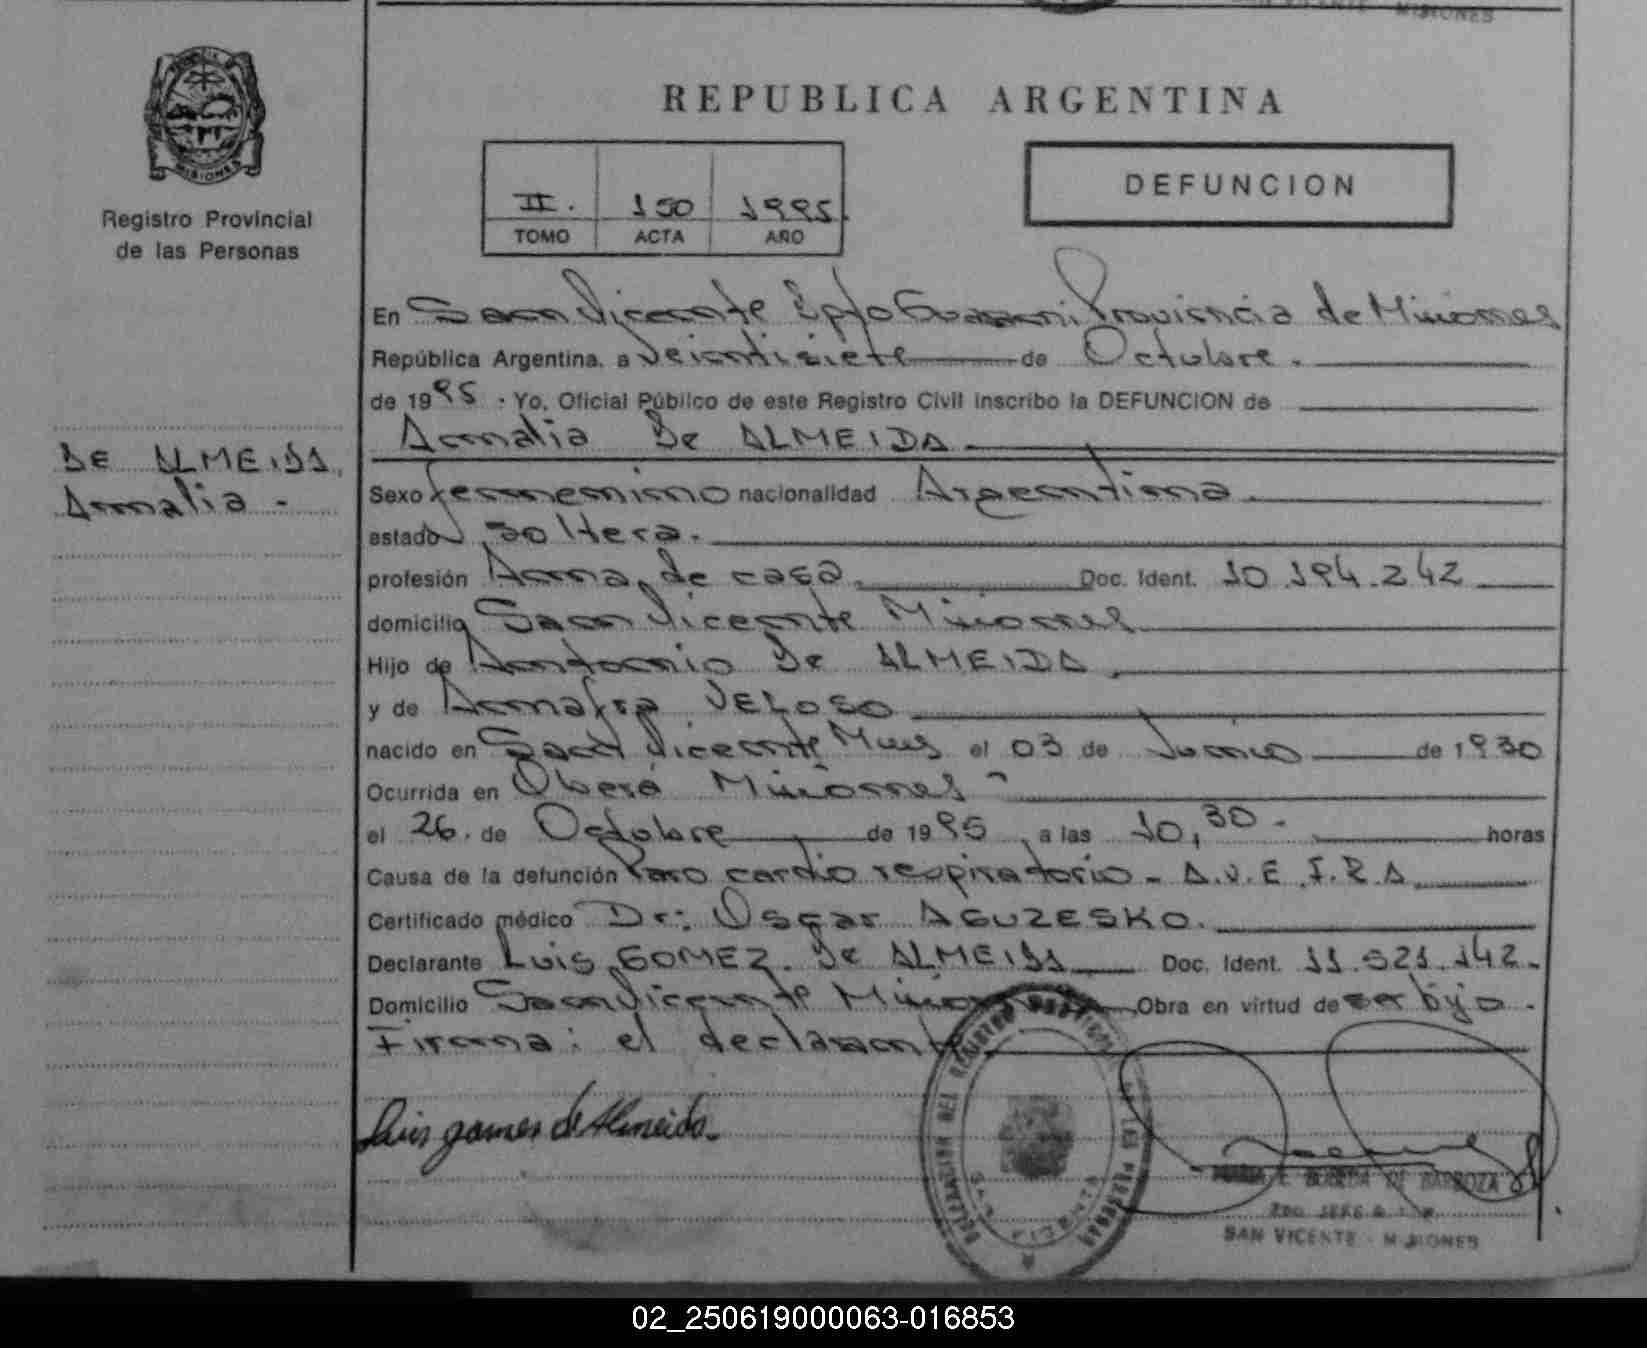 MISIONES
REPUBLICA ARGENTINA
MISIONES
DEFUNCION
Registro Provincial
de las Personas
II. 150 1995
TOMO ACTA AÑO
En San Vicente Dpto Guarani, Provincia de Misiones
República Argentina, a veintisiete de Octubre.
de 1995. Yo, Oficial Público de este Registro Civil inscribo la DEFUNCION de
Amalia De ALMEIDA
DE ALMEIDA
Amalia -
Sexo femenino nacionalidad Argentina
estado soltera.
profesión Ama de casa. Doc. Ident. 10.194.242
domicilio San Vicente Misiones
Hijo de Antonio De ALMEIDA
y de VELOSO
nacido en San Vicente Mnes el 03 de Junio de 1930
Ocurrida en Oberá Misiones
el 26. de Octubre de 1995 a las 10,30. horas
Causa de la defunción Paro cardio respiratorio - A.V.E. I.R.A
Certificado médico Dr: Oscar AGUZESKO.
Declarante Luis GOMEZ De ALMEIDA Doc. Ident. 11.521.142.
Domicilio San Vicente Misiones Obra en virtud de ser hijo.
Firma: el declarante
Luis gomes de Almeida.
DELEGACION DEL REGISTRO PROVINCIAL DE LAS PERSONAS
SAN VICENTE
DE BARBOZA
2DO JEFE
SAN VICENTE - MISIONES
02_250619000063-016853